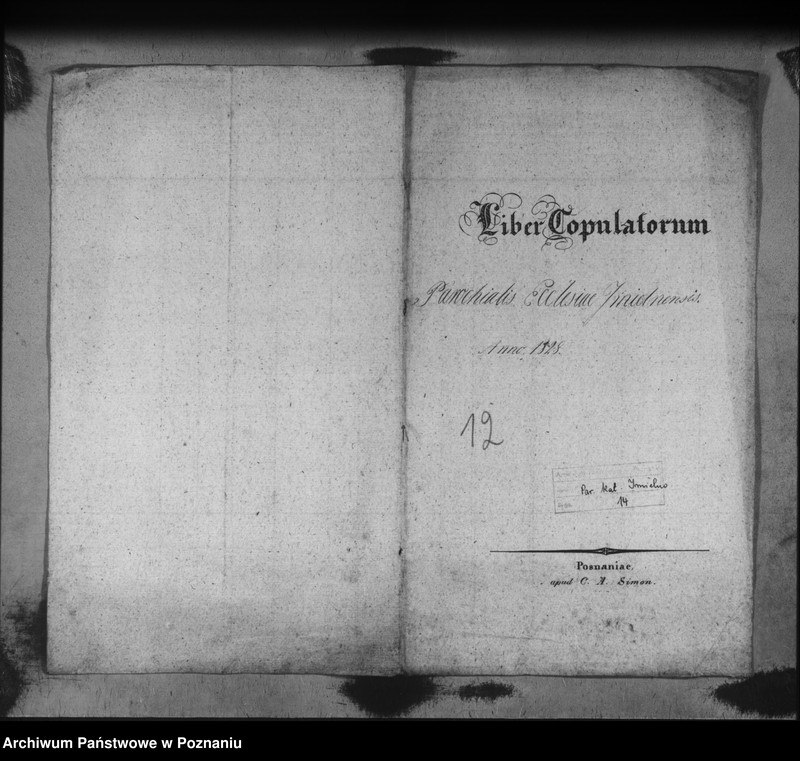 Liber Copulatorum
Parochialis Ecclesiae Imielnensis.
Anno 1828.
12
Par. kat. Imielno
14
Posnaniae,
apud C. A. Simon.
Archiwum Państwowe w Poznaniu